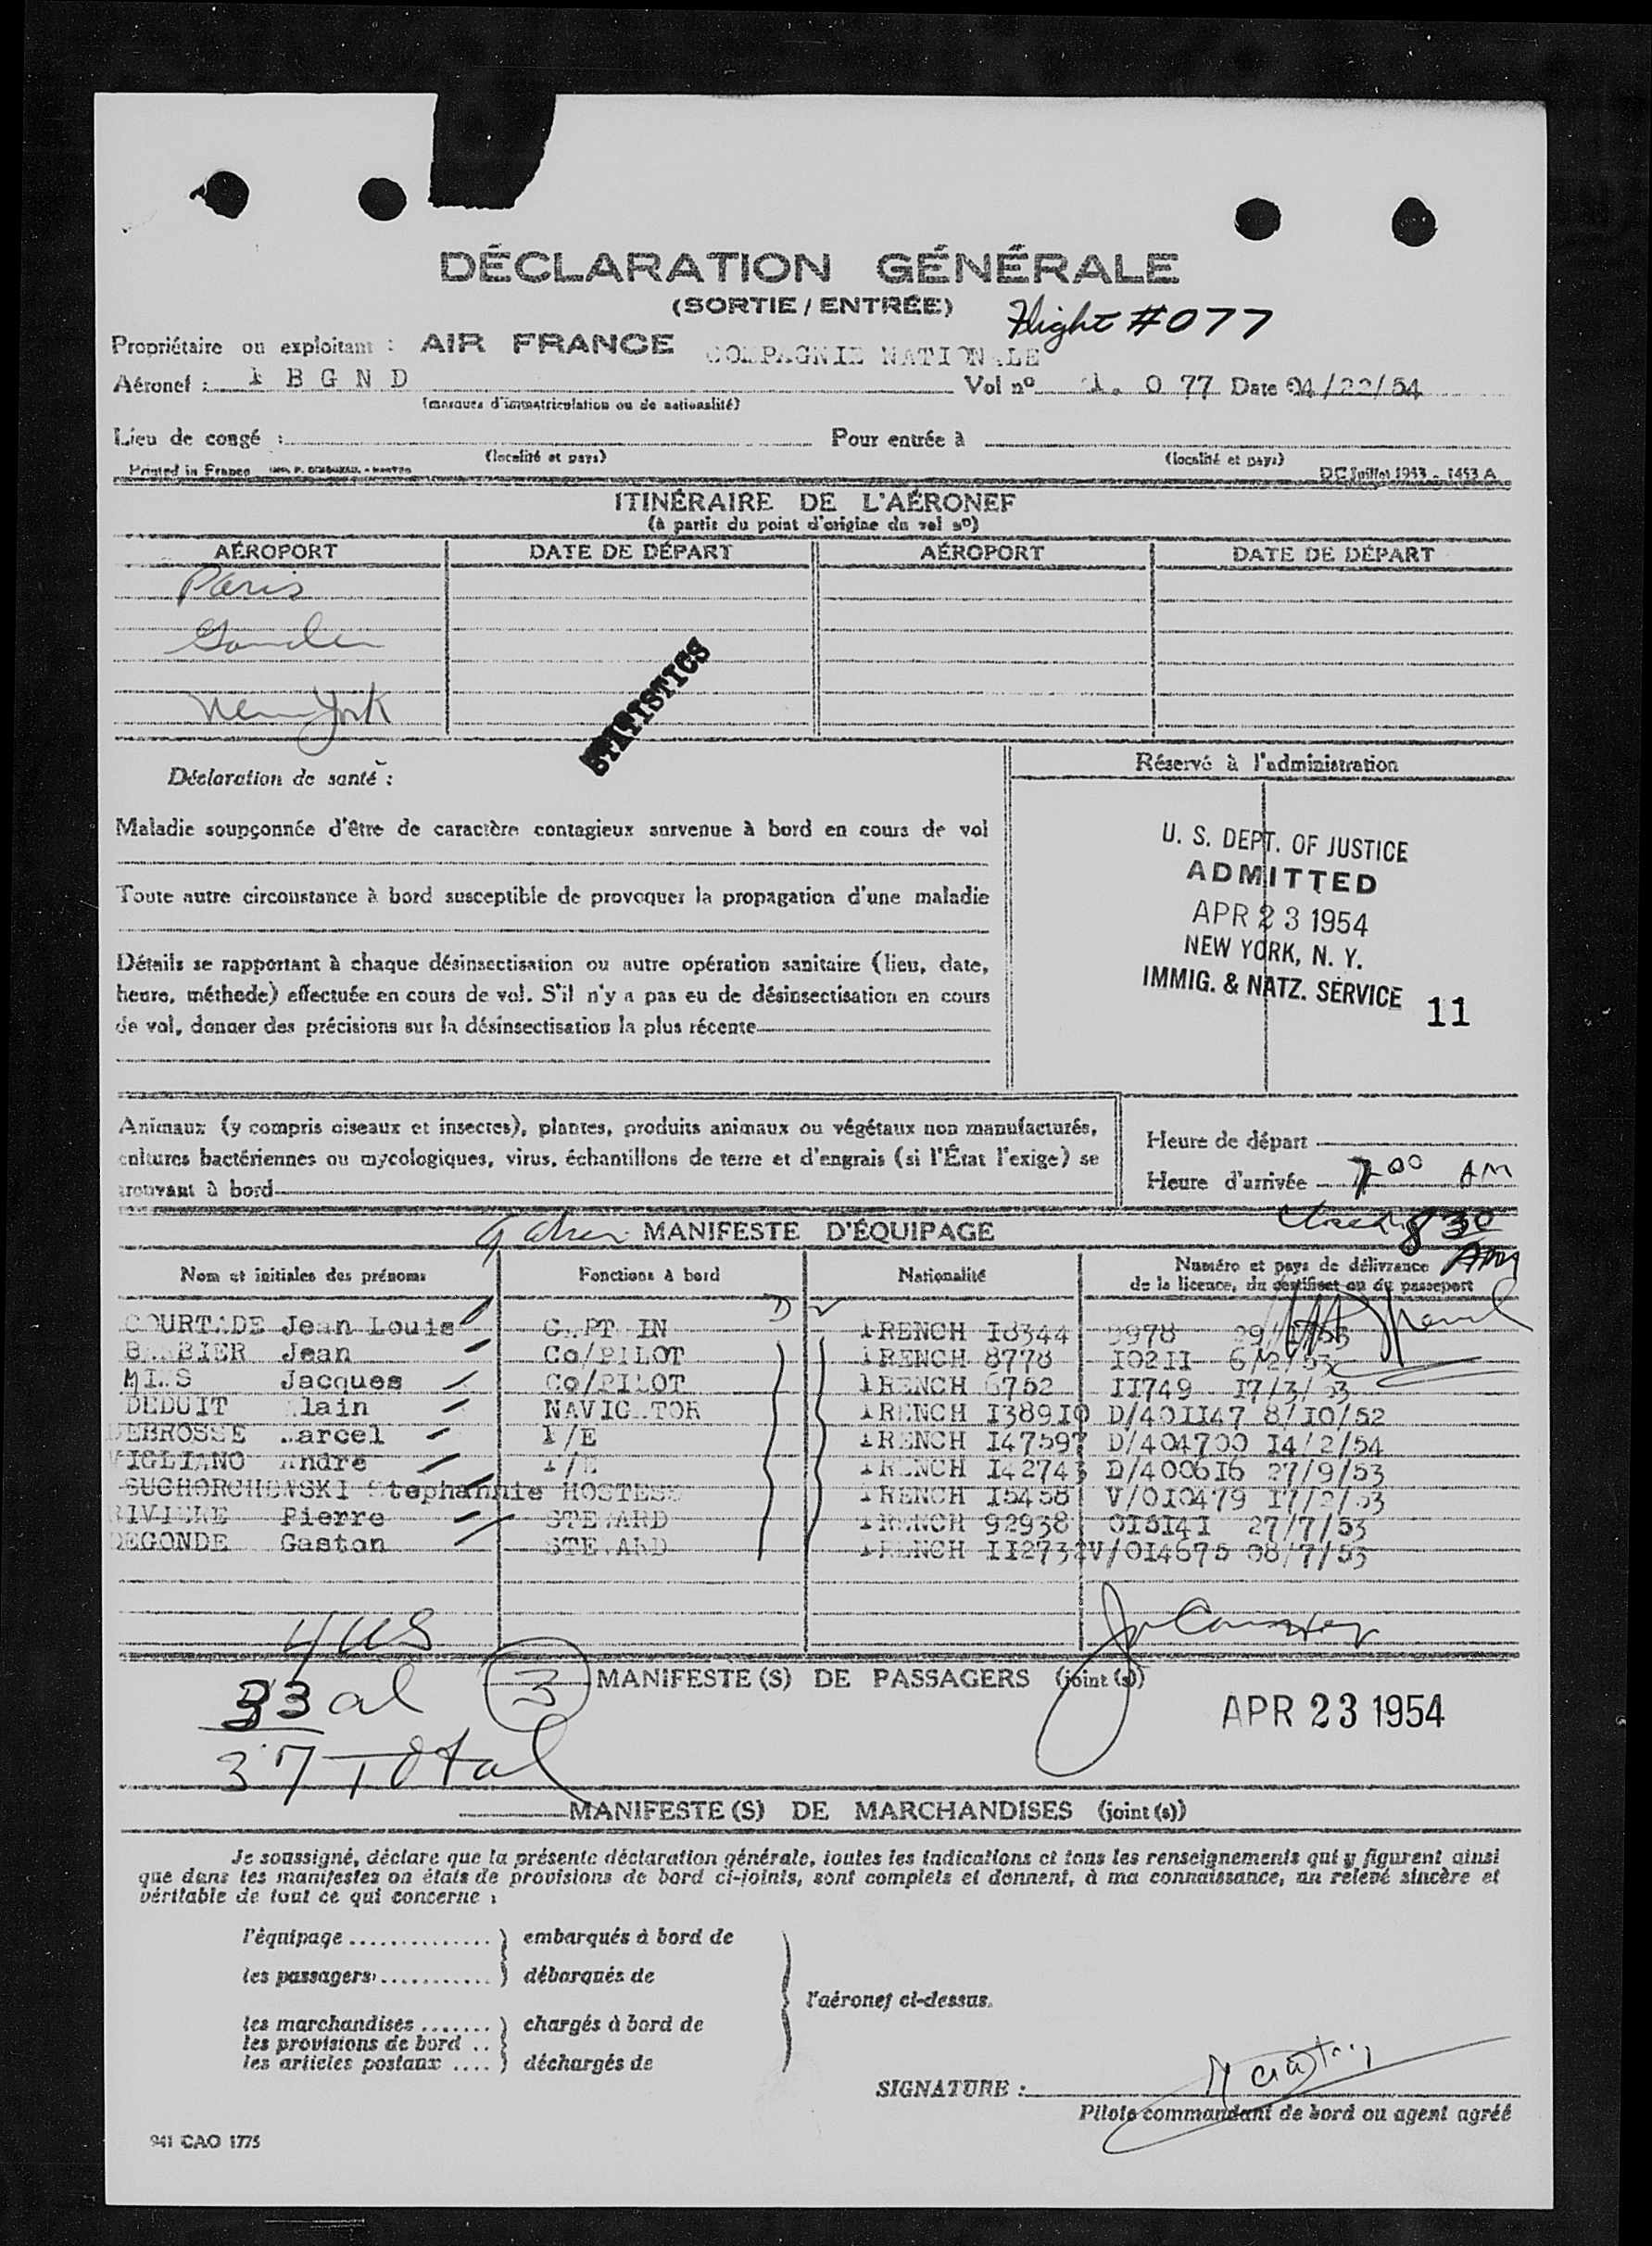 DÉCLARATION GÉNÉRALE
(SORTIE / ENTRÉE)
Flight #077
Propriétaire ou exploitant : AIR FRANCE COMPAGNIE NATIONALE
Aéronef : F B G N D Vol nº 1. 0 77 Date 04/22/54
(marques d'immatriculation ou de nationalité)
Lieu de congé : Pour entrée à
(localité et pays) (localité et pays)
Printed in France DC Juillet 1953 - 1453 A
ITINÉRAIRE DE L'AÉRONEF
(à partir du point d'origine du vol nº)
AÉROPORT DATE DE DÉPART AÉROPORT DATE DE DÉPART
Paris
Gander
New York
STATISTICS
Réservé à l'administration
Déclaration de santé :
Maladie soupçonnée d'être de caractère contagieux survenue à bord en cours de vol
Toute autre circonstance à bord susceptible de provoquer la propagation d'une maladie
Détails se rapportant à chaque désinsectisation ou autre opération sanitaire (lieu, date,
heure, méthode) effectuée en cours de vol. S'il n'y a pas eu de désinsectisation en cours
de vol, donner des précisions sur la désinsectisation la plus récente
U. S. DEPT. OF JUSTICE
ADMITTED
APR 23 1954
NEW YORK, N. Y.
IMMIG. & NATZ. SERVICE 11
Animaux (y compris oiseaux et insectes), plantes, produits animaux ou végétaux non manufacturés,
cultures bactériennes ou mycologiques, virus, échantillons de terre et d'engrais (si l'État l'exige) se
trouvant à bord
Heure de départ
Heure d'arrivée 7 00 AM
830 AM
MANIFESTE D'ÉQUIPAGE
Nom et initiales des prénoms Fonctions à bord Nationalité Numéro et pays de délivrance
de la licence, du certificat ou du passeport
COURTADE Jean Louis CAPTAIN FRENCH I8344 9978
BARBIER Jean Co/PILOT FRENCH 8778 I02II 6/2/53
Jacques CO/PILOT FRENCH 6752 II749 I7/3/53
DEDUIT Alain NAVIGATOR FRENCH I389I0 D/40II47 8/I0/52
DEBROSSE Marcel F/E FRENCH I47597 D/404700 I4/2/54
VIGLIANO Andre F/E FRENCH I42743 D/4006I6 27/9/53
SUCHORCHEWSKI Stephannie HOSTESS FRENCH I5458 V/0I0479 I7/2/53
RIVIERE Pierre STEWARD FRENCH 92938 0I5I4I 27/7/53
DEGONDE Gaston STEWARD FRENCH II2732 V/0I4675 08/7/53
4 US
33 al 3 MANIFESTE (S) DE PASSAGERS (joint (s))
37 Total
APR 23 1954
MANIFESTE (S) DE MARCHANDISES (joint (s))
Je soussigné, déclare que la présente déclaration générale, toutes les indications et tous les renseignements qui y figurent ainsi
que dans les manifestes ou états de provisions de bord ci-joints, sont complets et donnent, à ma connaissance, un relevé sincère et
véritable de tout ce qui concerne :
l'équipage .............. ) embarqués à bord de
les passagers ........... ) débarqués de
l'aéronef ci-dessus.
les marchandises ....... ) chargés à bord de
les provisions de bord ..
les articles postaux .... ) déchargés de
SIGNATURE :
Pilote commandant de bord ou agent agréé
941 CAO 1775